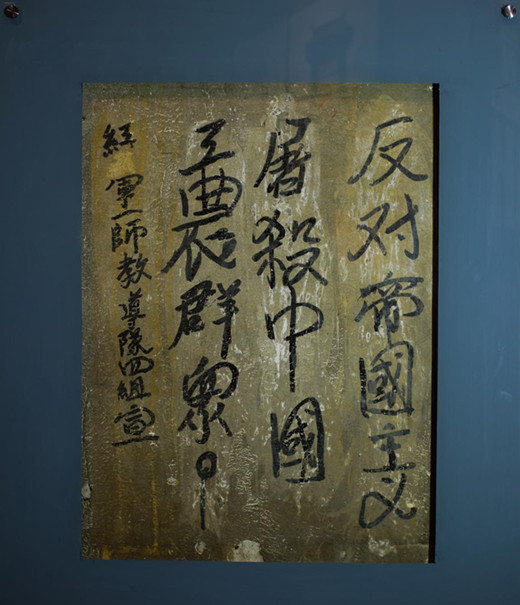 反对帝國主义
屠殺中國
工農群眾！
紅軍一師教導隊四組宣